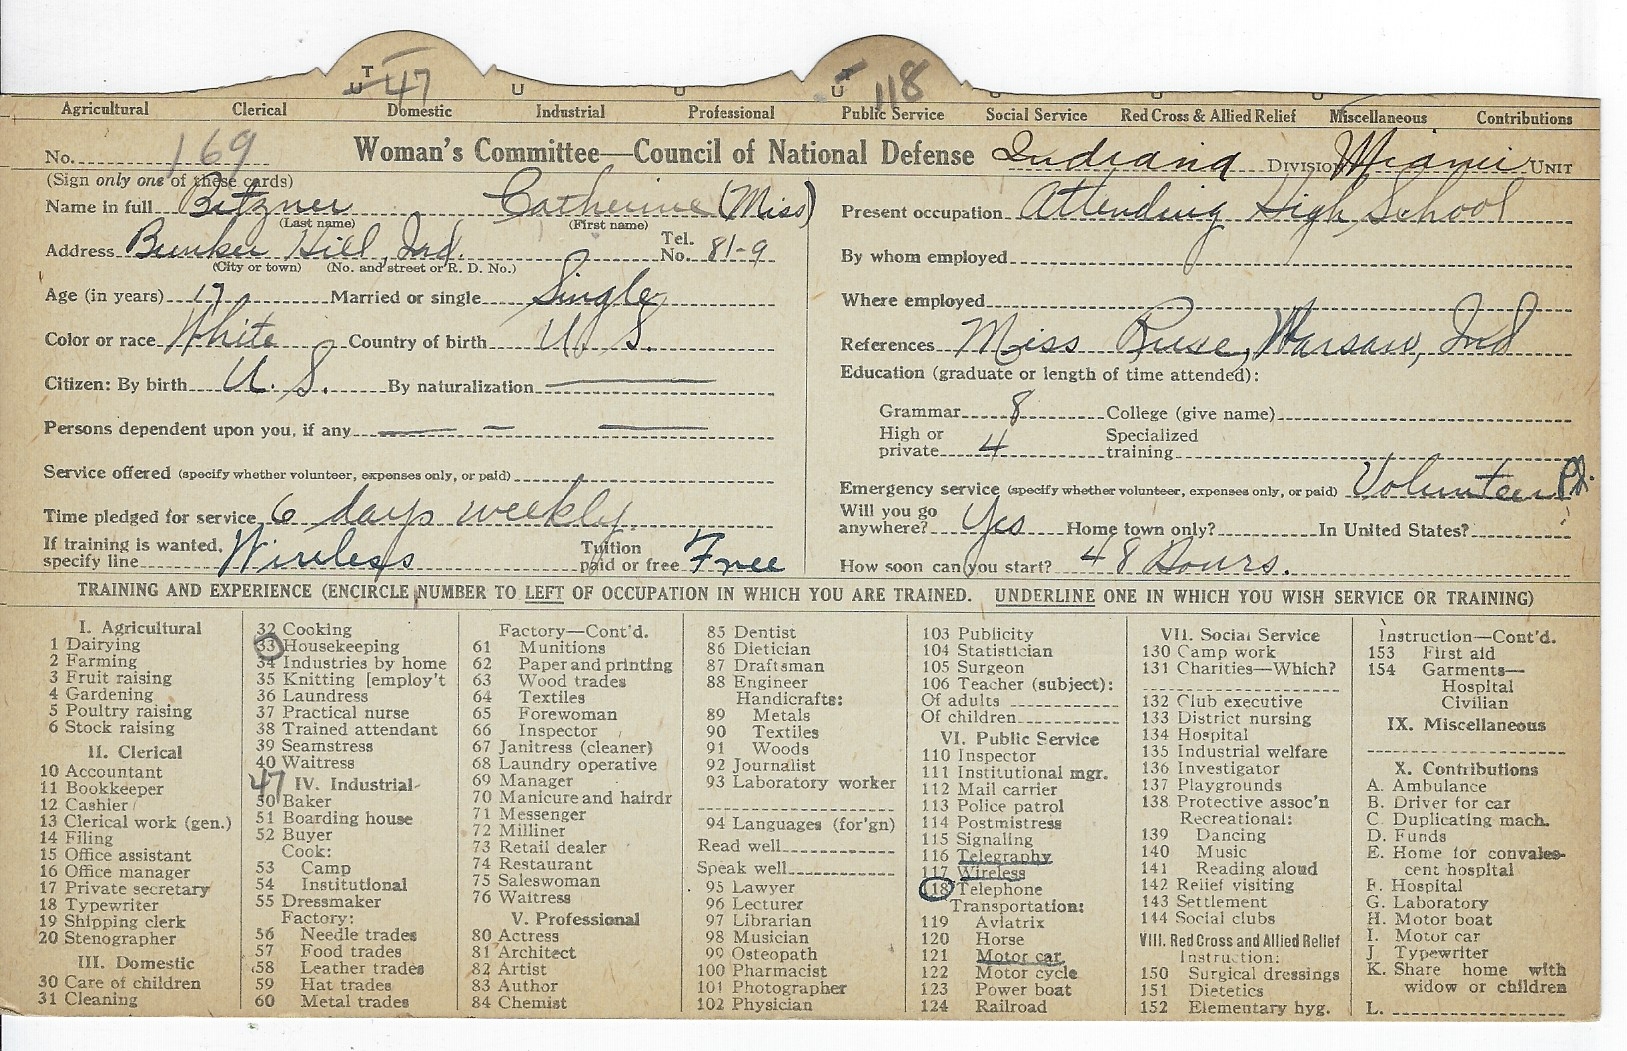 U T 47 U U U T 118 U U U
Agricultural Clerical Domestic Industrial Professional Public Service Social Service Red Cross & Allied Relief Miscellaneous Contributions
No. 169 Woman's Committee—Council of National Defense Indiana DIVISION Miami UNIT
(Sign only one of these cards)
Name in full Bitzner Catherine (Miss)
(Last name) (First name)
Address Bunker Hill, Ind. Tel. No. 81-9
(City or town) (No. and street or R. D. No.)
Age (in years) 17 Married or single Single
Color or race White Country of birth U. S.
Citizen: By birth U. S. By naturalization ——
Persons dependent upon you, if any — — —
Service offered (specify whether volunteer, expenses only, or paid)
Time pledged for service 6 days weekly.
If training is wanted, specify line Wireless Tuition paid or free Free
Present occupation Attending High School
By whom employed
Where employed
References Miss Ruse, Warsaw, Ind
Education (graduate or length of time attended):
Grammar 8 College (give name)
High or private 4 Specialized training
Emergency service (specify whether volunteer, expenses only, or paid) Volunteer Pd.
Will you go anywhere? Yes Home town only? In United States?
How soon can you start? 48 Hours.
TRAINING AND EXPERIENCE (ENCIRCLE NUMBER TO LEFT OF OCCUPATION IN WHICH YOU ARE TRAINED. UNDERLINE ONE IN WHICH YOU WISH SERVICE OR TRAINING)
I. Agricultural
1 Dairying
2 Farming
3 Fruit raising
4 Gardening
5 Poultry raising
6 Stock raising
II. Clerical
10 Accountant
11 Bookkeeper
12 Cashier
13 Clerical work (gen.)
14 Filing
15 Office assistant
16 Office manager
17 Private secretary
18 Typewriter
19 Shipping clerk
20 Stenographer
III. Domestic
30 Care of children
31 Cleaning
32 Cooking
33 Housekeeping
34 Industries by home
35 Knitting [employ't
36 Laundress
37 Practical nurse
38 Trained attendant
39 Seamstress
40 Waitress
47 IV. Industrial
50 Baker
51 Boarding house
52 Buyer
Cook:
53 Camp
54 Institutional
55 Dressmaker
Factory:
56 Needle trades
57 Food trades
58 Leather trades
59 Hat trades
60 Metal trades
Factory—Cont'd.
61 Munitions
62 Paper and printing
63 Wood trades
64 Textiles
65 Forewoman
66 Inspector
67 Janitress (cleaner)
68 Laundry operative
69 Manager
70 Manicure and hairdr
71 Messenger
72 Milliner
73 Retail dealer
74 Restaurant
75 Saleswoman
76 Waitress
V. Professional
80 Actress
81 Architect
82 Artist
83 Author
84 Chemist
85 Dentist
86 Dietician
87 Draftsman
88 Engineer
Handicrafts:
89 Metals
90 Textiles
91 Woods
92 Journalist
93 Laboratory worker
94 Languages (for'gn)
Read well
Speak well
95 Lawyer
96 Lecturer
97 Librarian
98 Musician
99 Osteopath
100 Pharmacist
101 Photographer
102 Physician
103 Publicity
104 Statistician
105 Surgeon
106 Teacher (subject):
Of adults
Of children
VI. Public Service
110 Inspector
111 Institutional mgr.
112 Mail carrier
113 Police patrol
114 Postmistress
115 Signaling
116 Telegraphy
117 Wireless
118 Telephone
Transportation:
119 Aviatrix
120 Horse
121 Motor car
122 Motor cycle
123 Power boat
124 Railroad
VII. Social Service
130 Camp work
131 Charities—Which?
132 Club executive
133 District nursing
134 Hospital
135 Industrial welfare
136 Investigator
137 Playgrounds
138 Protective assoc'n
Recreational:
139 Dancing
140 Music
141 Reading aloud
142 Relief visiting
143 Settlement
144 Social clubs
VIII. Red Cross and Allied Relief
Instruction:
150 Surgical dressings
151 Dietetics
152 Elementary hyg.
Instruction—Cont'd.
153 First aid
154 Garments—
Hospital
Civilian
IX. Miscellaneous
X. Contributions
A. Ambulance
B. Driver for car
C. Duplicating mach.
D. Funds
E. Home for convales-
cent hospital
F. Hospital
G. Laboratory
H. Motor boat
I. Motor car
J Typewriter
K. Share home with
widow or children
L.